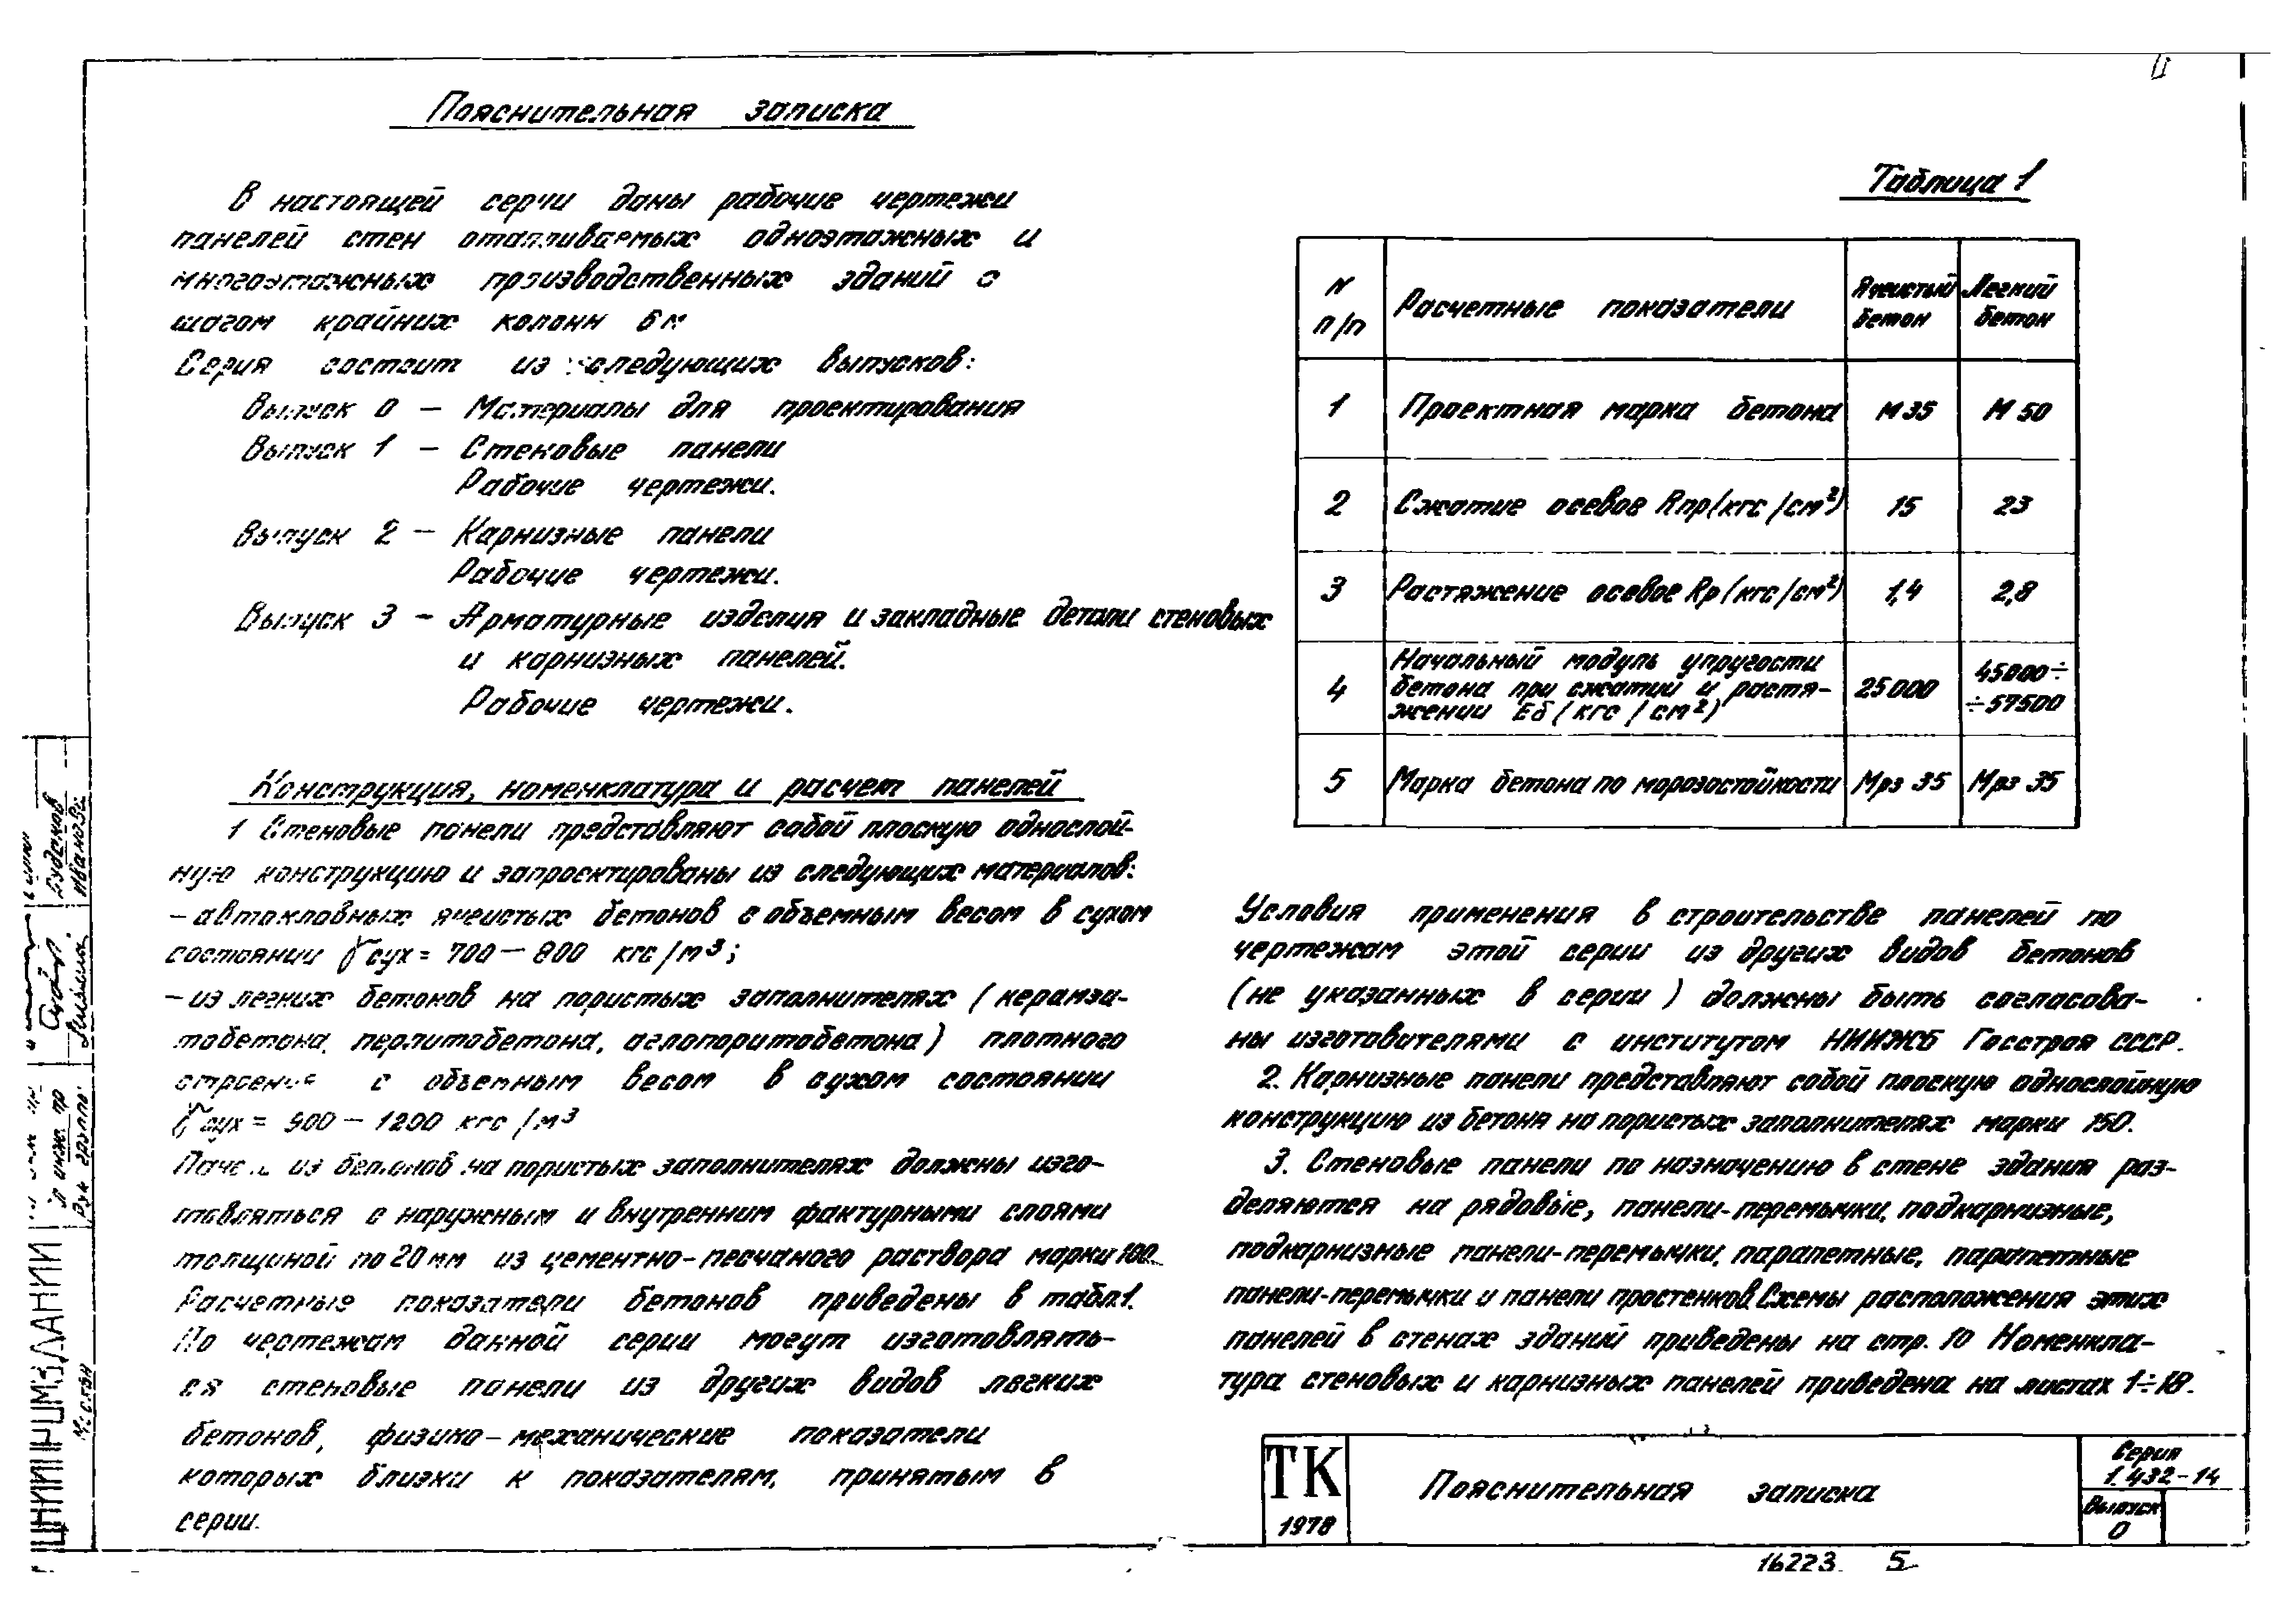 Пояснительная записка
В настоящей серии даны рабочие чертежи
панелей стен отапливаемых одноэтажных и
многоэтажных производственных зданий с
шагом крайних колонн 6 м
Серия состоит из следующих выпусков:
Выпуск 0 – Материалы для проектирования
Выпуск 1 – Стеновые панели
Рабочие чертежи.
Выпуск 2 – Карнизные панели
Рабочие чертежи.
Выпуск 3 – Арматурные изделия и закладные детали стеновых
и карнизных панелей.
Рабочие чертежи.
Конструкция, номенклатура и расчет панелей
1 Стеновые панели представляют собой плоскую однослой-
ную конструкцию и запроектированы из следующих материалов:
– автоклавных ячеистых бетонов с объемным весом в сухом
состоянии γсух = 700 – 800 кгс/м³;
– из легких бетонов на пористых заполнителях (керамзи-
тобетона, перлитобетона, аглопоритобетона) плотного
строения с объемным весом в сухом состоянии
γсух = 900 – 1200 кгс/м³
из бетонов на пористых заполнителях должны изго-
товляться с наружным и внутренним фактурными слоями
толщиной по 20 мм из цементно-песчаного раствора марки 100.
Расчетные показатели бетонов приведены в табл.1.
По чертежам данной серии могут изготовлять-
ся стеновые панели из других видов легких
бетонов, физико-механические показатели
которых близки к показателям, принятым в
серии.
Таблица 1
N п/п | Расчетные показатели | Ячеистый бетон | Легкий бетон
1 | Проектная марка бетона | М 35 | М 50
2 | Сжатие осевое Rпр (кгс/см²) | 15 | 23
3 | Растяжение осевое Rр (кгс/см²) | 1,4 | 2,8
4 | Начальный модуль упругости бетона при сжатии и растя-жении Еб (кгс/см²) | 25000 | 45000÷ ÷57500
5 | Марка бетона по морозостойкости | Мрз 35 | Мрз 35
Условия применения в строительстве панелей по
чертежам этой серии из других видов бетонов
(не указанных в серии) должны быть согласова-
ны изготовителями с институтом НИИЖБ Госстроя СССР.
2. Карнизные панели представляют собой плоскую однослойную
конструкцию из бетона на пористых заполнителях марки 150.
3. Стеновые панели по назначению в стене здания раз-
деляются на рядовые, панели-перемычки, подкарнизные,
подкарнизные панели-перемычки, парапетные, парапетные
панели-перемычки и панели простенков. Схемы расположения этих
панелей в стенах зданий приведены на стр. 10 Номенкла-
тура стеновых и карнизных панелей приведена на листах 1÷18.
ТК
1978
Пояснительная записка
Серия
1.432-14
Выпуск
0
16223 5